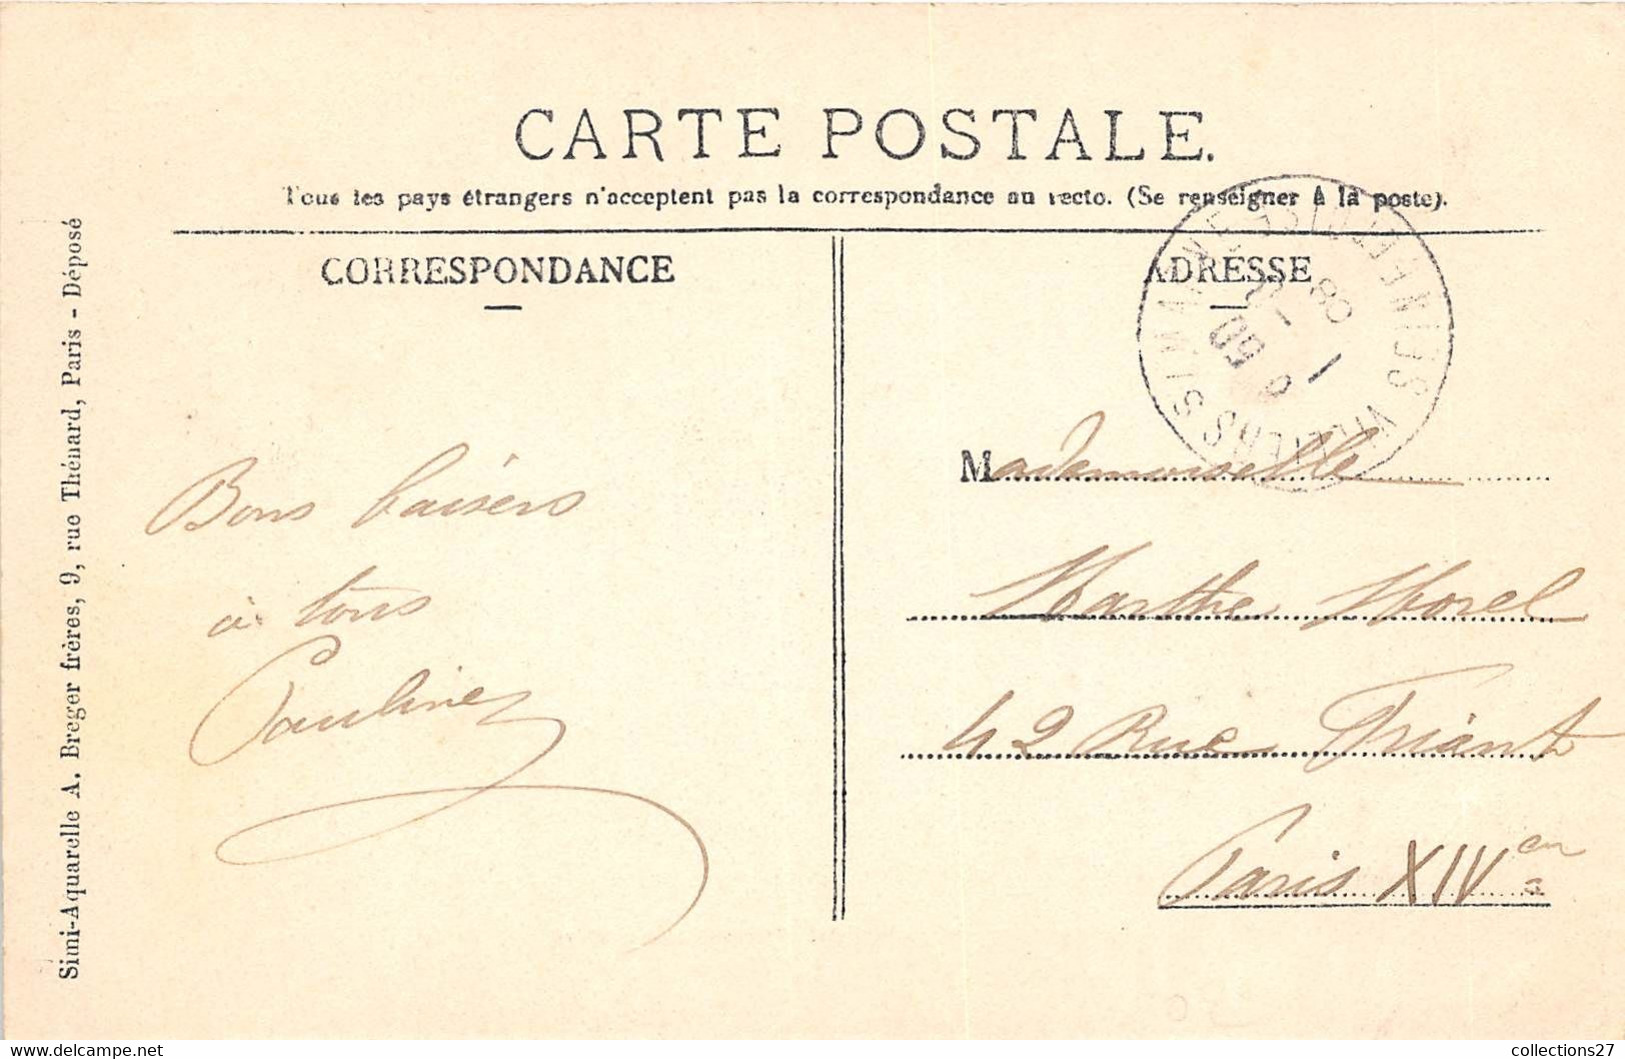 CARTE POSTALE.
Tous les pays étrangers n'acceptent pas la correspondance au recto. (Se renseigner à la poste).
CORRESPONDANCE
ADRESSE
Simi-Aquarelle A. Breger frères, 9, rue Thénard, Paris - Déposé
Bons baisers
à tous
Pauline
Mademoiselle
Marthe Morel
42 Rue Friant
Paris XIV
VILLIERS S/ MARNE
collections27